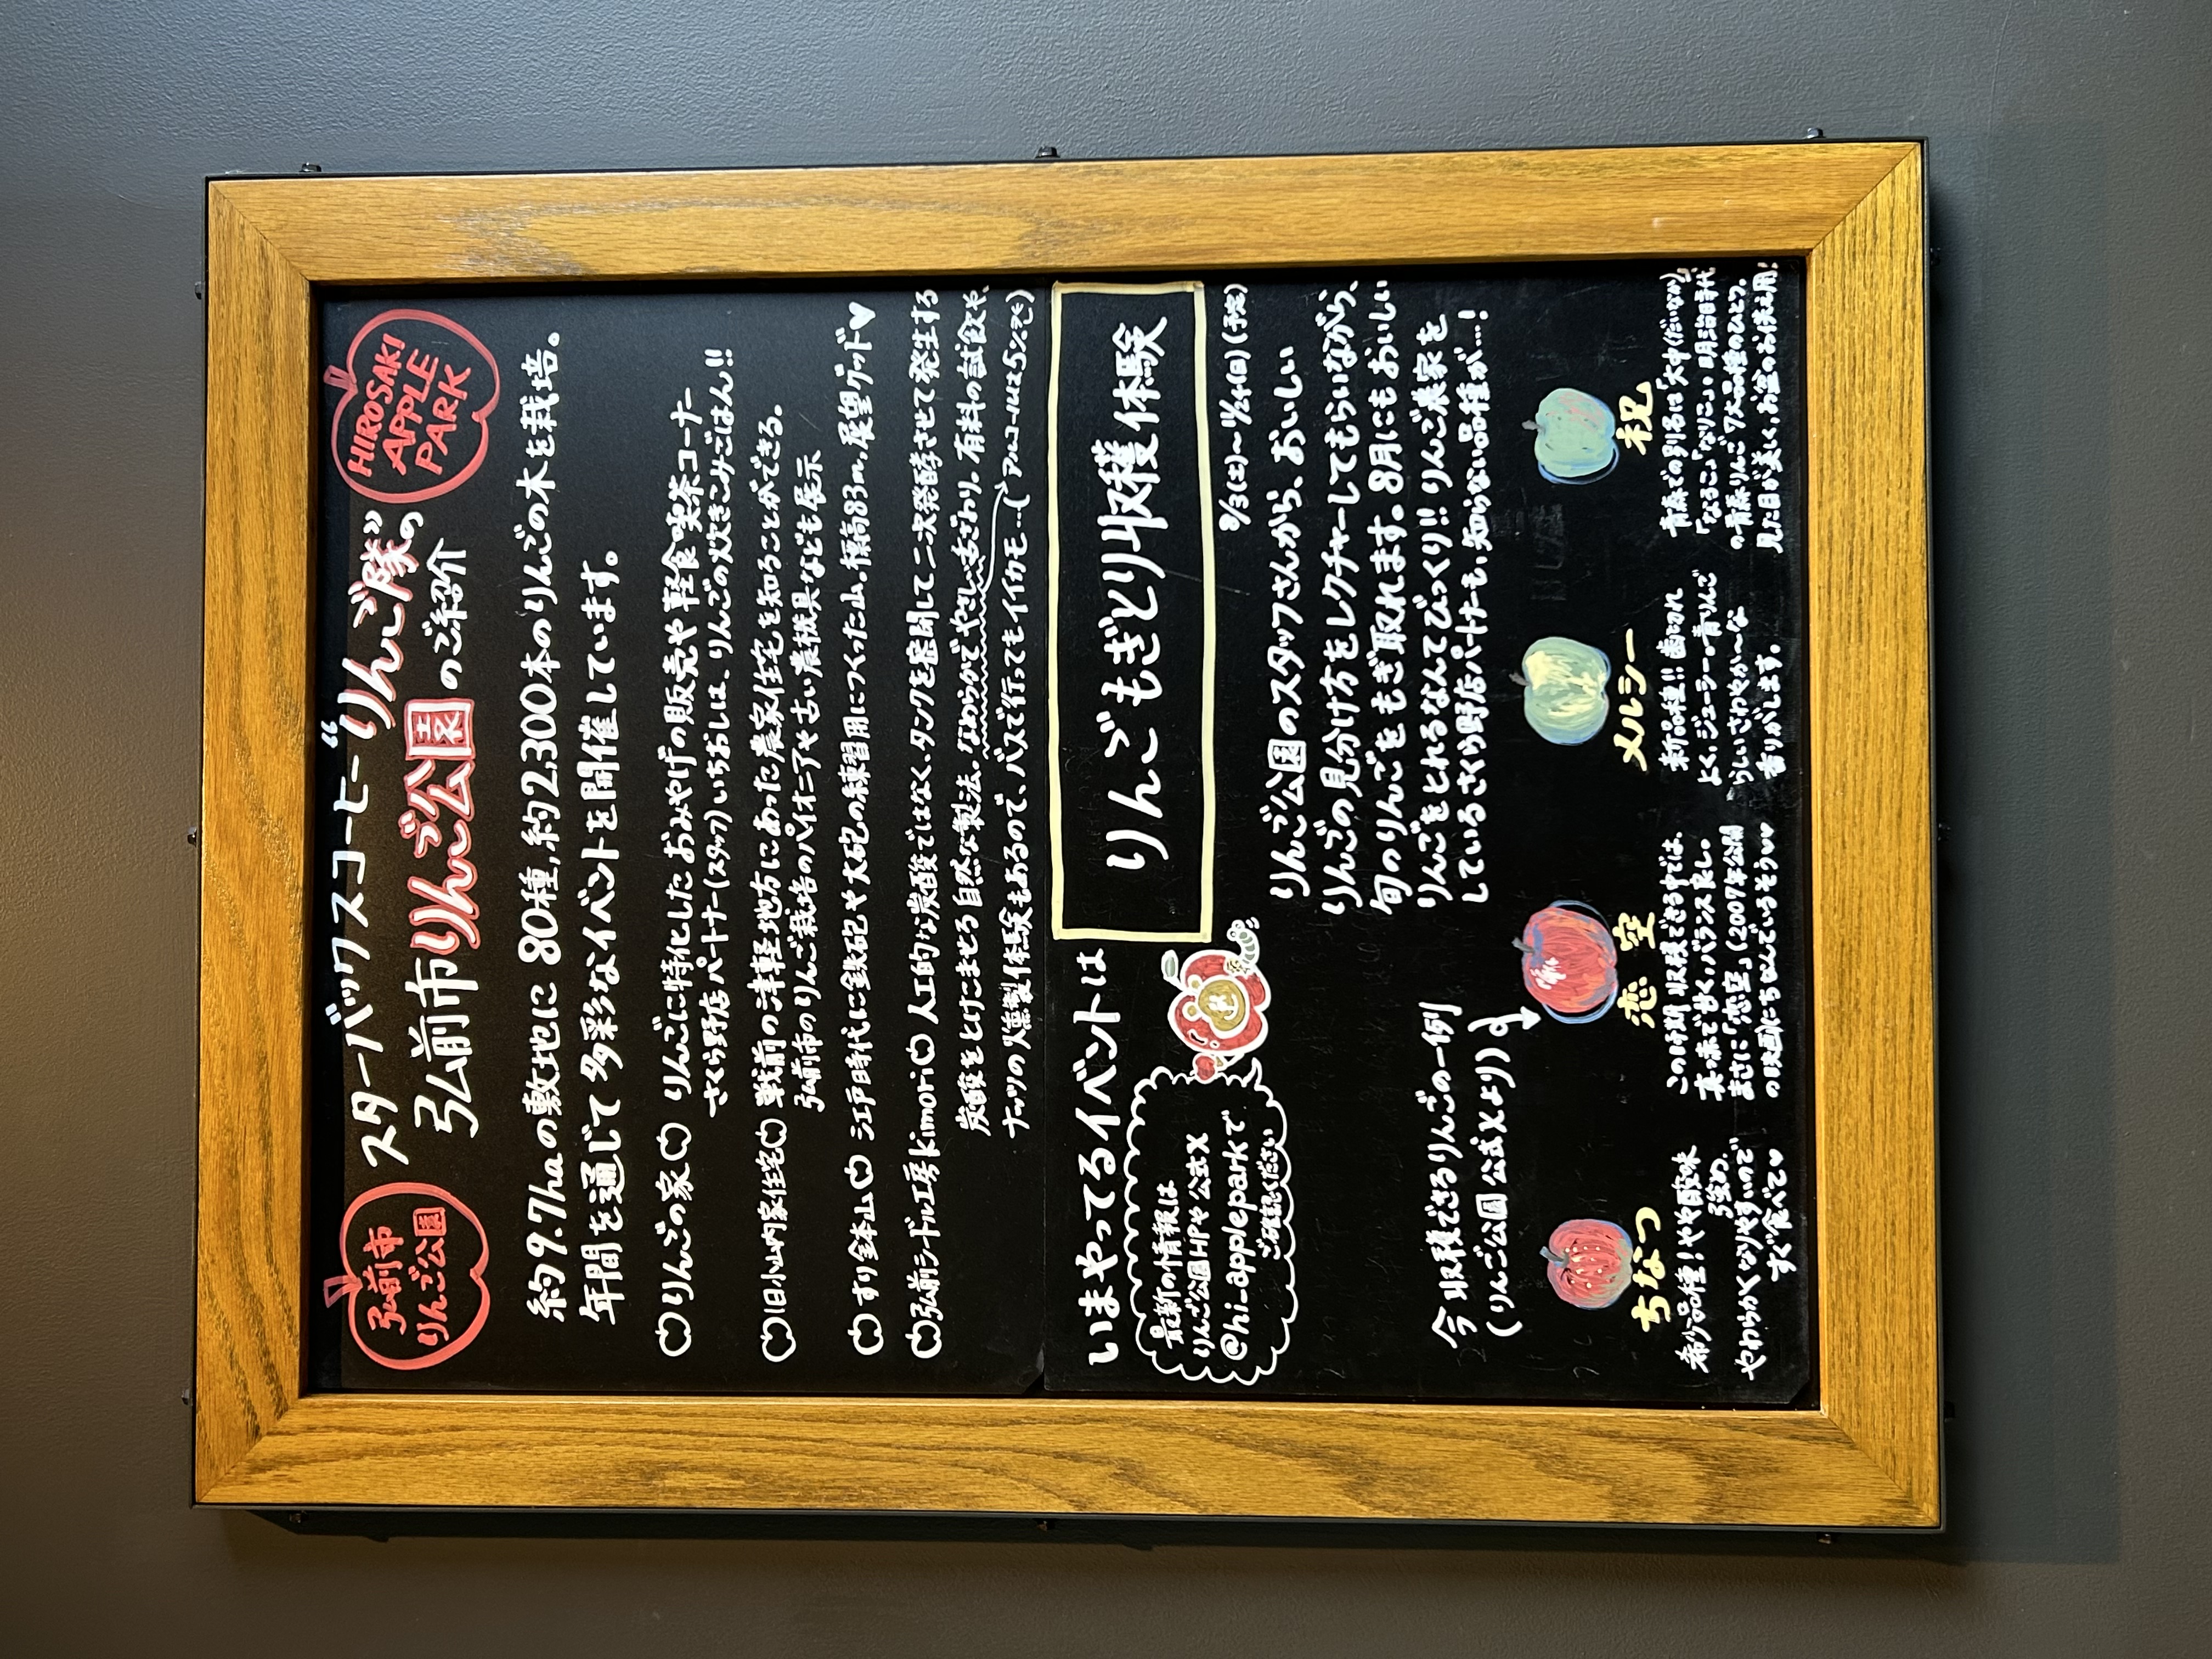 弘前市
りんご公園
スターバックスコーヒー“りんご隊”の
弘前市りんご公園のご紹介
HIROSAKI
APPLE
PARK
約9.7haの敷地に80種,約2,300本のりんごの木を栽培。
年間を通じて多彩なイベントを開催しています。
りんごの家 りんごに特化したおみやげの販売や軽食・喫茶コーナー
さくら野店パートナー(スタッフ)いちおしは、りんごの炊きこみごはん!!
旧小山内家住宅 戦前の津軽地方にあった農家住宅を知ることができる。
弘前市のりんご栽培のパイオニアや古い農機具なども展示
すり鉢山 江戸時代に鉄砲や大砲の練習用につくった山。標高83m,展望グッド♥
弘前シードル工房kimori 人工的な炭酸ではなく、タンクを密閉して二次発酵させて発生する
炭酸をとけこませる自然な製法。なめらかでやさしい舌ざわり。有料の試飲や、
ナッツの燻製体験もあるので、バスで行ってもイイカモ…(アルコールは5%です)
いまやってるイベントは
りんごもぎとり収穫体験
8/3(土)〜11/24(日)(予定)
最新の情報は
りんご公園HPや公式X
@hi_appleparkで
ご確認ください
りんご公園のスタッフさんから、おいしい
りんごの見分け方をレクチャーしてもらいながら、
旬のりんごをもぎ取れます。8月にもおいしい
りんごをとれるなんてびっくり!! りんご農家を
しているさくら野店パートナーも、知らない品種が…!
今収穫できるりんごの一例
(りんご公園公式Xより)
ちなつ
希少品種!やや酸味
強め。
やわらかくなりやすいので
すぐ食べて♥
恋空
この時期収穫できる中では、
真っ赤で甘く、バランス良し。
まさに「恋空」(2007年公開
の映画)にちなんでいるそう♥♥
メルシー
新品種!! 歯切れ
よく、ジューシー。青りんご
らしいさわやか〜な
香りがします。
祝
青森での別名は「大中(だいなか)」
「なるこ」「なりこ」。明治時代
の青森りんご7大品種のひとつ。
見た目が美しく、お盆のお供え用!